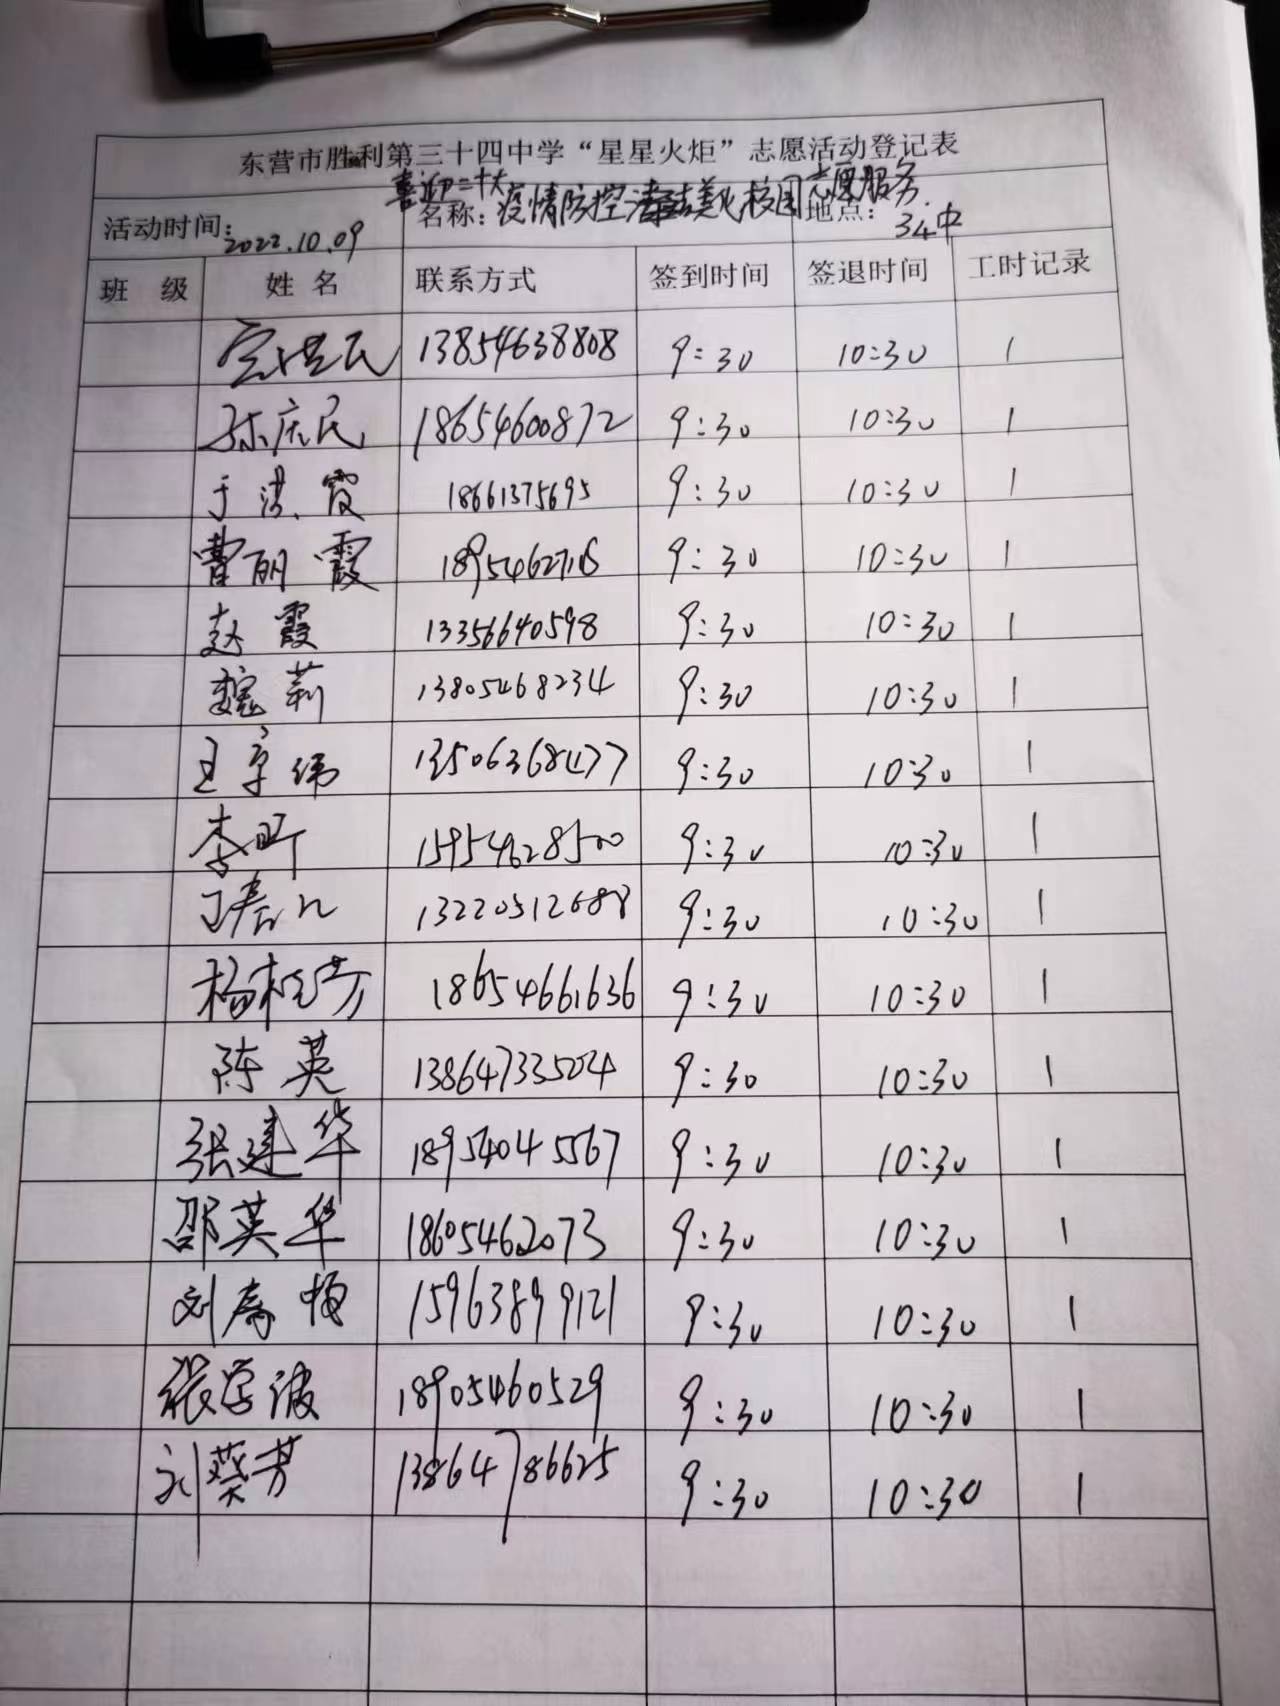 东营市胜利第三十四中学“星星火炬”志愿活动登记表
喜迎二十大
活动时间：2022.10.09 名称：疫情防控清洁美化校园志愿服务 地点：34中
班 级 姓 名 联系方式 签到时间 签退时间 工时记录
13854638808 9:30 10:30 1
孙庆民 18654600872 9:30 10:30 1
于洪霞 18661375695 9:30 10:30 1
曹丽霞 9:30 10:30 1
赵霞 13356640598 9:30 10:30 1
魏莉 13805468234 9:30 10:30 1
王京伟 9:30 10:30 1
李昕 15954628500 9:30 10:30 1
13220512688 9:30 10:30 1
杨桂芳 18654661636 9:30 10:30 1
陈英 13864733504 9:30 10:30 1
张建华 18954045567 9:30 10:30 1
邵英华 18605462073 9:30 10:30 1
刘 梅 15963899121 9:30 10:30 1
张学波 18905460529 9:30 10:30 1
刘葵芳 13864786625 9:30 10:30 1